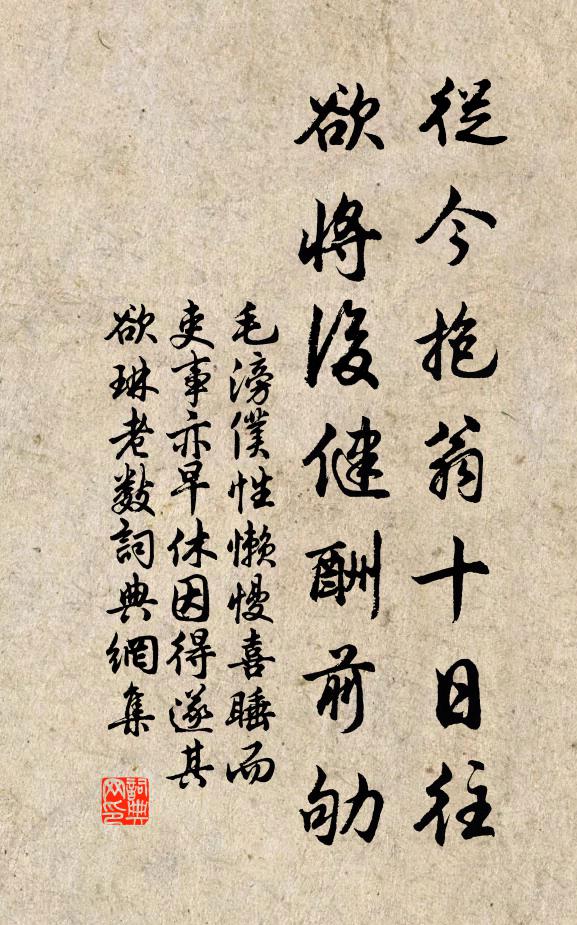 從今抱翁十日往
欲將後健酬前劬
毛滂僕性懶慢喜睡而
吏事亦早休因得遂其
欲琳老數詞典網集
詞典
网印